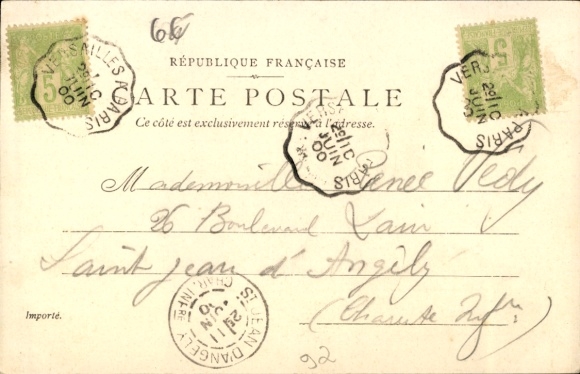 66
RÉPUBLIQUE FRANÇAISE
CARTE POSTALE
Ce côté est exclusivement réservé à l'adresse.
VERSAILLES A PARIS
29 JUIN 00
5
VERS PARIS
29 JUIN 00
5
PARIS
29 JUIN 00
Mademoiselle Renée Vedy
26 Boulevard Lair
Saint Jean d'Angély
(Charente Infre)
ST JEAN D'ANGELY
CHAR. INFRE
JUIN 00
Importé.
92